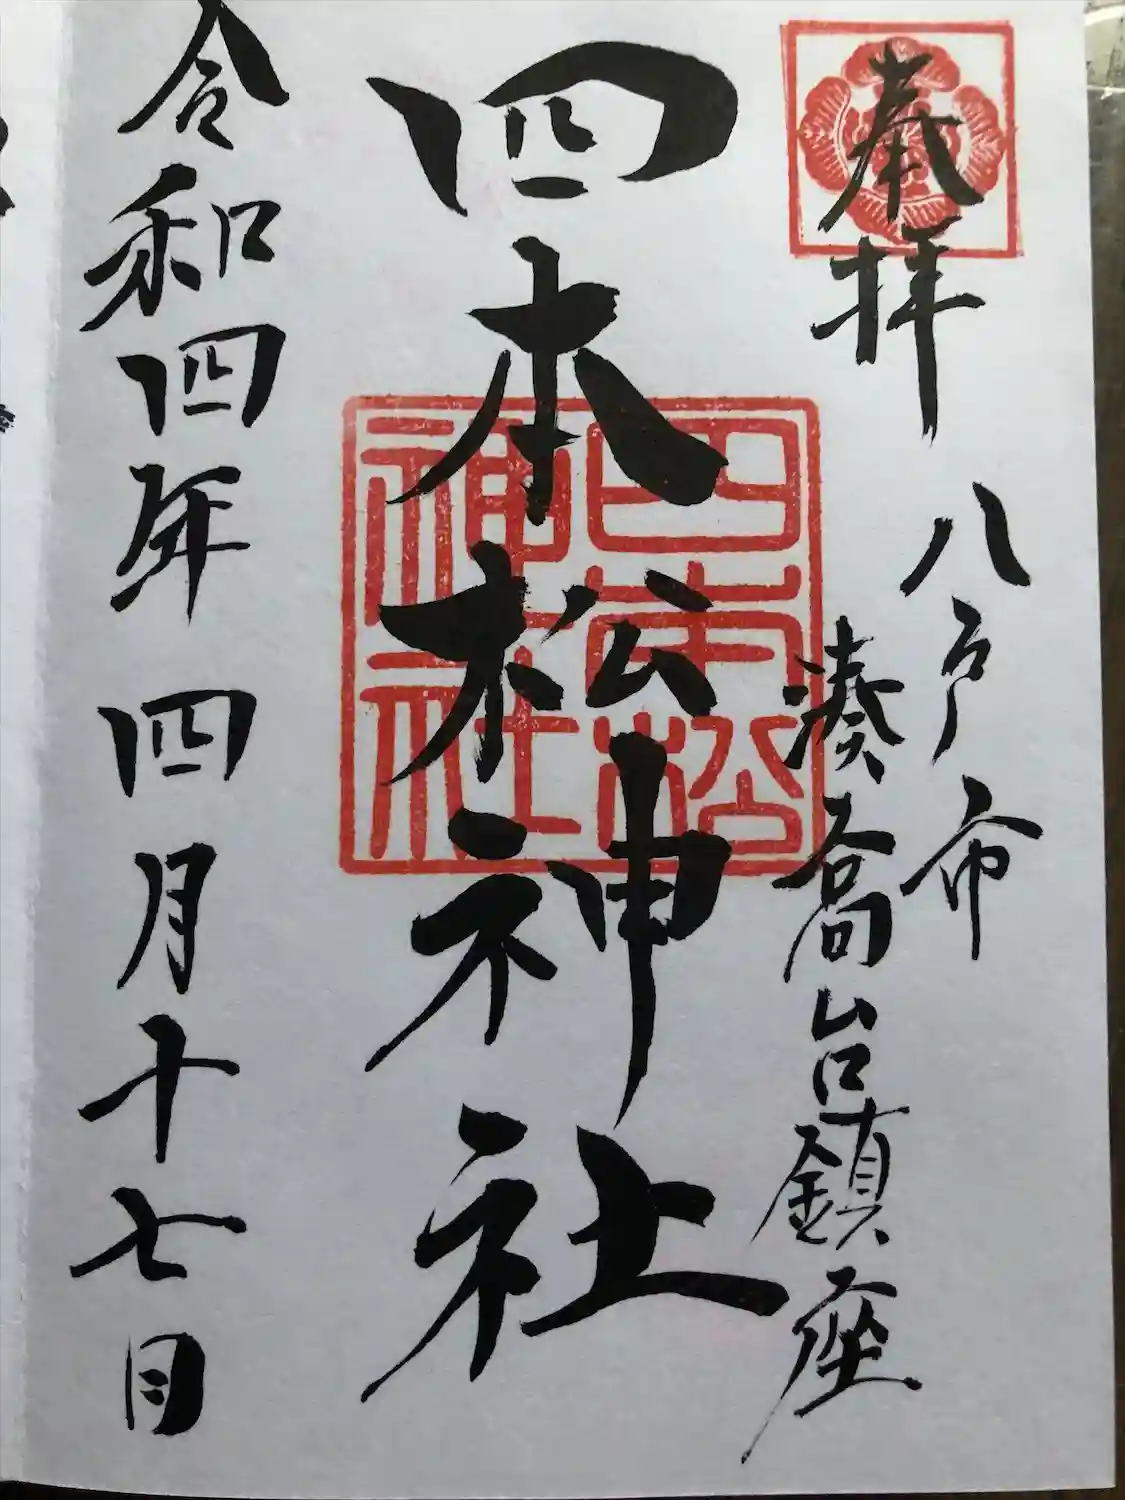 奉拝
八戸市
湊高台鎮座
四本松神社
四本松
神社
令和四年 四月十七日